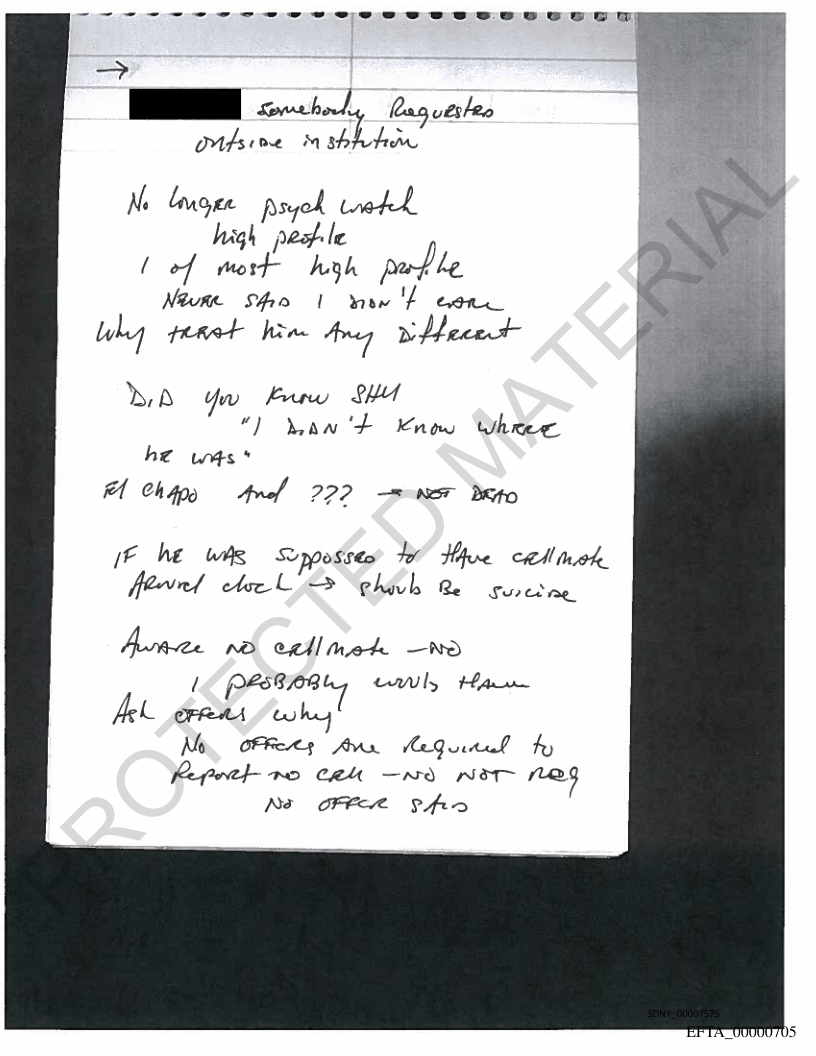 →
Somebody Requested
outside institution
No longer psych watch
high profile
1 of most high profile
NEVER SAID I DIDN'T CARE
Why treat him Any Different
DID you know SHU
"I DIDN'T know where
he WAS"
El Chapo And ??? → NOT DEAD
IF he WAS supposses to HAve cellmate
Around clock → should Be suicide
AWARE no cellmate - NO
I PROBABLY would HAve
Ask OFFCRS why
No OFFCRS Are Required to
Report no cell - NO NOT REQ
No OFFCR SAID
PROTECTED MATERIAL
SDNY_00007575
EFTA_00000705